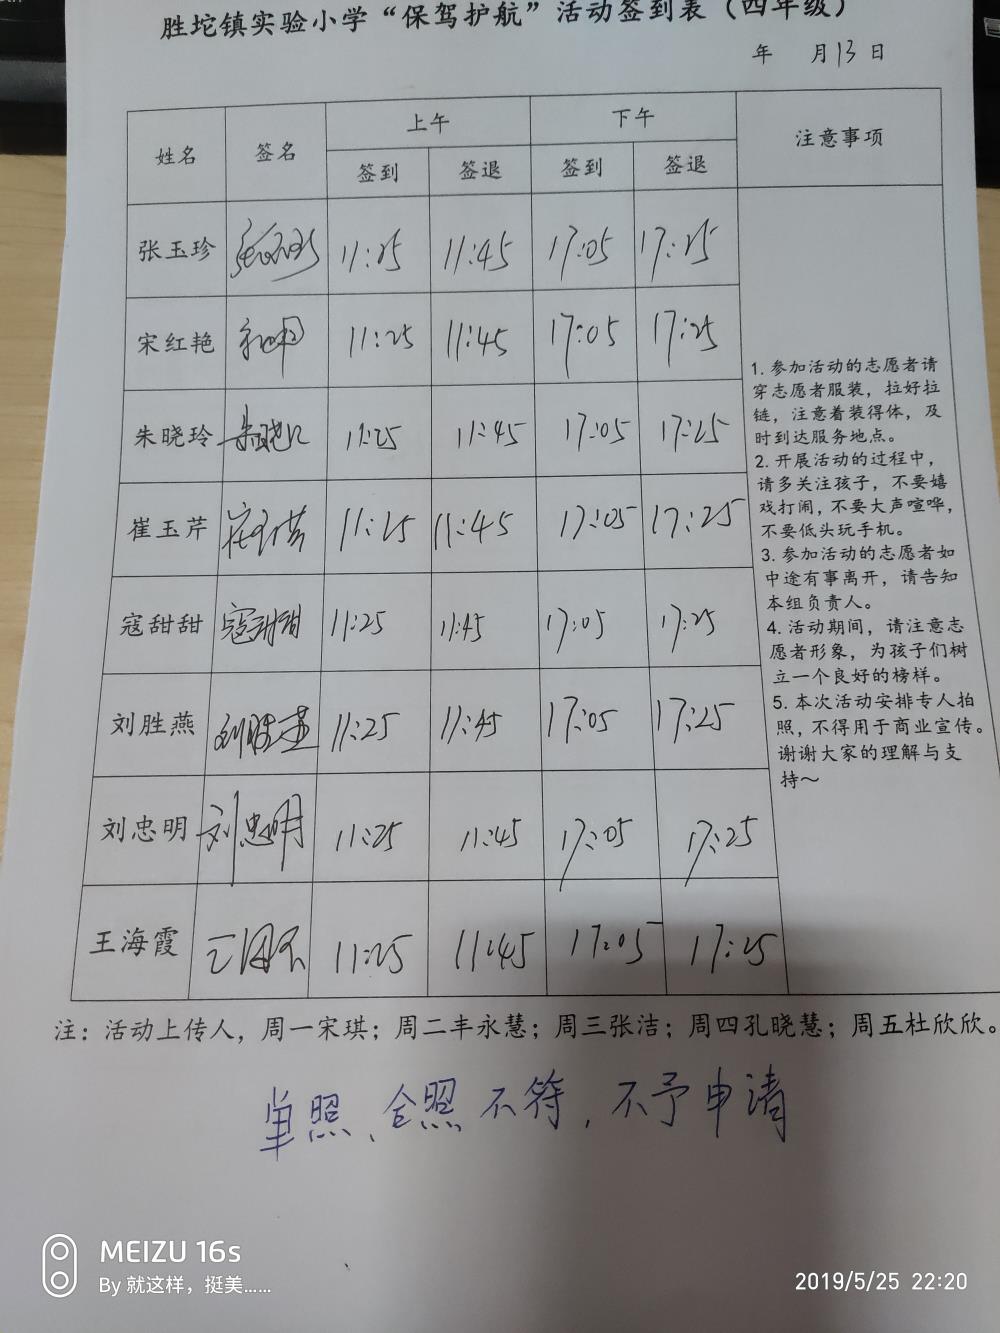 胜坨镇实验小学“保驾护航”活动签到表（四年级）
年 月13日
姓名 签名 上午 下午 注意事项
签到 签退 签到 签退
张玉珍 11:25 11:45 17:05 17:25
宋红艳 11:25 11:45 17:05 17:25
朱晓玲 朱晓玲 11:25 11:45 17:05 17:25
崔玉芹 崔玉芹 11:25 11:45 17:05 17:25
寇甜甜 寇甜甜 11:25 11:45 17:05 17:25
刘胜燕 刘胜燕 11:25 11:45 17:05 17:25
刘忠明 刘忠明 11:25 11:45 17:05 17:25
王海霞 11:25 11:45 17:05 17:25
1. 参加活动的志愿者请
穿志愿者服装，拉好拉
链，注意着装得体，及
时到达服务地点。
2. 开展活动的过程中，
请多关注孩子，不要嬉
戏打闹，不要大声喧哗，
不要低头玩手机。
3. 参加活动的志愿者如
中途有事离开，请告知
本组负责人。
4. 活动期间，请注意志
愿者形象，为孩子们树
立一个良好的榜样。
5. 本次活动安排专人拍
照，不得用于商业宣传。
谢谢大家的理解与支
持～
注：活动上传人，周一宋琪；周二丰永慧；周三张洁；周四孔晓慧；周五杜欣欣。
单照、合照不符，不予申请
MEIZU 16s
By 就这样，挺美……
2019/5/25 22:20